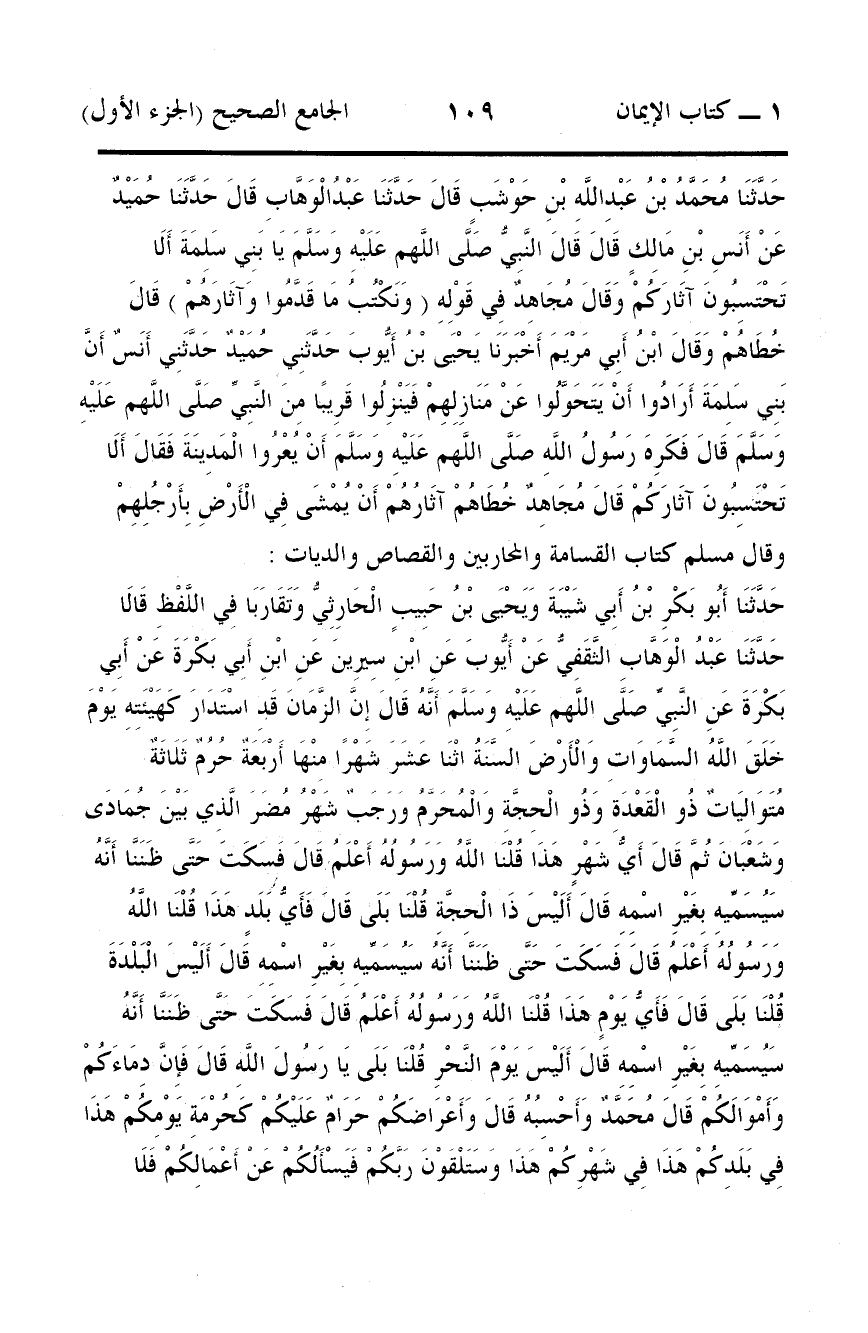 ١ ــ كتاب الإيمان ١٠٩ الجامع الصحيح (الجزء الأول)
حَدَّثَنَا مُحَمَّدُ بْنُ عَبْدِاللَّهِ بْنِ حَوْشَبٍ قَالَ حَدَّثَنَا عَبْدُالْوَهَّابِ قَالَ حَدَّثَنَا حُمَيْدٌ
عَنْ أَنَسِ بْنِ مَالِكٍ قَالَ قَالَ النَّبِيُّ صَلَّى اللهم عَلَيْهِ وَسَلَّمَ يَا بَنِي سَلِمَةَ أَلَا
تَحْتَسِبُونَ آثَارَكُمْ وَقَالَ مُجَاهِدٌ فِي قَوْلِهِ ( وَنَكْتُبُ مَا قَدَّمُوا وَآثَارَهُمْ ) قَالَ
خُطَاهُمْ وَقَالَ ابْنُ أَبِي مَرْيَمَ أَخْبَرَنَا يَحْيَى بْنُ أَيُّوبَ حَدَّثَنِي حُمَيْدٌ حَدَّثَنِي أَنَسٌ أَنَّ
بَنِي سَلِمَةَ أَرَادُوا أَنْ يَتَحَوَّلُوا عَنْ مَنَازِلِهِمْ فَيَنْزِلُوا قَرِيبًا مِنَ النَّبِيِّ صَلَّى اللهم عَلَيْهِ
وَسَلَّمَ قَالَ فَكَرِهَ رَسُولُ اللَّهِ صَلَّى اللهم عَلَيْهِ وَسَلَّمَ أَنْ يُعْرُوا الْمَدِينَةَ فَقَالَ أَلَا
تَحْتَسِبُونَ آثَارَكُمْ قَالَ مُجَاهِدٌ خُطَاهُمْ آثَارُهُمْ أَنْ يُمْشَى فِي الْأَرْضِ بِأَرْجُلِهِمْ
وقال مسلم كتاب القسامة والمحاربين والقصاص والديات :
حَدَّثَنَا أَبُو بَكْرِ بْنُ أَبِي شَيْبَةَ وَيَحْيَى بْنُ حَبِيبٍ الْحَارِثِيُّ وَتَقَارَبَا فِي اللَّفْظِ قَالَا
حَدَّثَنَا عَبْدُ الْوَهَّابِ الثَّقَفِيُّ عَنْ أَيُّوبَ عَنِ ابْنِ سِيرِينَ عَنِ ابْنِ أَبِي بَكْرَةَ عَنْ أَبِي
بَكْرَةَ عَنِ النَّبِيِّ صَلَّى اللهم عَلَيْهِ وَسَلَّمَ أَنَّهُ قَالَ إِنَّ الزَّمَانَ قَدِ اسْتَدَارَ كَهَيْئَتِهِ يَوْمَ
خَلَقَ اللَّهُ السَّمَاوَاتِ وَالْأَرْضَ السَّنَةُ اثْنَا عَشَرَ شَهْرًا مِنْهَا أَرْبَعَةٌ حُرُمٌ ثَلَاثَةٌ
مُتَوَالِيَاتٌ ذُو الْقَعْدَةِ وَذُو الْحِجَّةِ وَالْمُحَرَّمُ وَرَجَبٌ شَهْرُ مُضَرَ الَّذِي بَيْنَ جُمَادَى
وَشَعْبَانَ ثُمَّ قَالَ أَيُّ شَهْرٍ هَذَا قُلْنَا اللَّهُ وَرَسُولُهُ أَعْلَمُ قَالَ فَسَكَتَ حَتَّى ظَنَنَّا أَنَّهُ
سَيُسَمِّيهِ بِغَيْرِ اسْمِهِ قَالَ أَلَيْسَ ذَا الْحِجَّةِ قُلْنَا بَلَى قَالَ فَأَيُّ بَلَدٍ هَذَا قُلْنَا اللَّهُ
وَرَسُولُهُ أَعْلَمُ قَالَ فَسَكَتَ حَتَّى ظَنَنَّا أَنَّهُ سَيُسَمِّيهِ بِغَيْرِ اسْمِهِ قَالَ أَلَيْسَ الْبَلْدَةَ
قُلْنَا بَلَى قَالَ فَأَيُّ يَوْمٍ هَذَا قُلْنَا اللَّهُ وَرَسُولُهُ أَعْلَمُ قَالَ فَسَكَتَ حَتَّى ظَنَنَّا أَنَّهُ
سَيُسَمِّيهِ بِغَيْرِ اسْمِهِ قَالَ أَلَيْسَ يَوْمَ النَّحْرِ قُلْنَا بَلَى يَا رَسُولَ اللَّهِ قَالَ فَإِنَّ دِمَاءَكُمْ
وَأَمْوَالَكُمْ قَالَ مُحَمَّدٌ وَأَحْسِبُهُ قَالَ وَأَعْرَاضَكُمْ حَرَامٌ عَلَيْكُمْ كَحُرْمَةِ يَوْمِكُمْ هَذَا
فِي بَلَدِكُمْ هَذَا فِي شَهْرِكُمْ هَذَا وَسَتَلْقَوْنَ رَبَّكُمْ فَيَسْأَلُكُمْ عَنْ أَعْمَالِكُمْ فَلَا